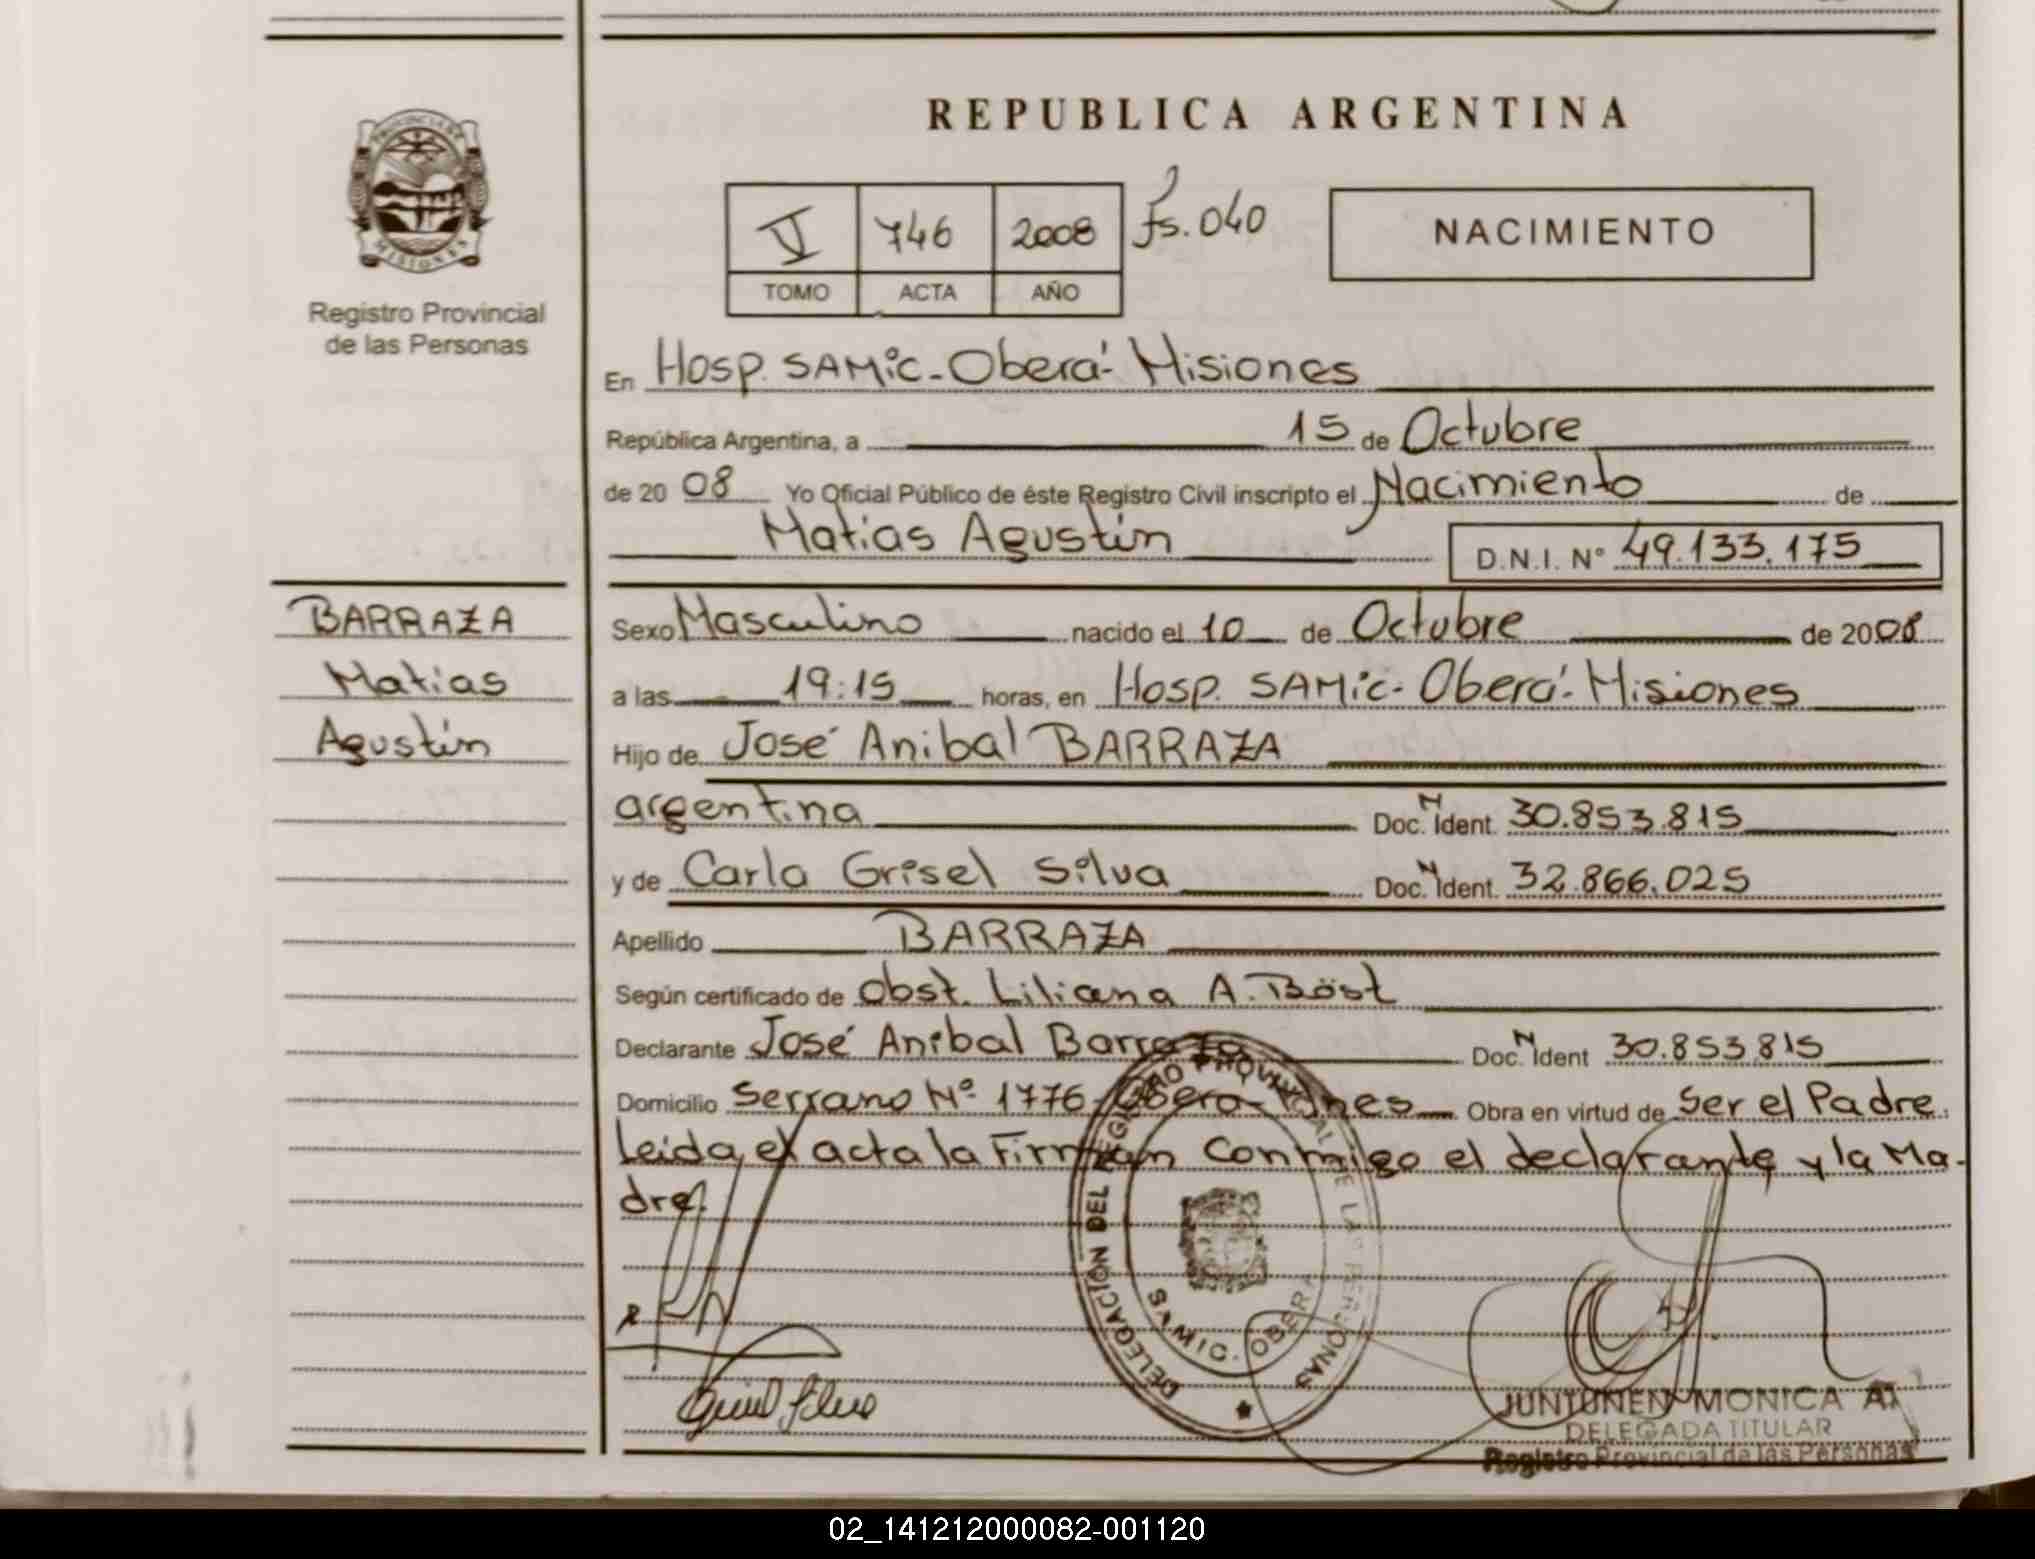 PROVINCIA DE
MISIONES
Registro Provincial
de las Personas
BARRAZA
Matias
Agustín
REPUBLICA ARGENTINA
V 746 2008 Fs. 040
TOMO ACTA AÑO
NACIMIENTO
En Hosp. SAMIC - Oberá - Misiones
República Argentina, a 15 de Octubre
de 2008 Yo Oficial Público de éste Registro Civil inscripto el Nacimiento de
Matías Agustín D.N.I. N° 49.133.175
Sexo Masculino nacido el 10 de Octubre de 2008
a las 19:15 horas, en Hosp. SAMIC - Oberá - Misiones
Hijo de José Anibal BARRAZA
argentina Doc. N Ident. 30.853.815
y de Carla Grisel Silva Doc. N Ident. 32.866.025
Apellido BARRAZA
Según certificado de Obst. Liliana A. Böst
Declarante José Anibal Barraza Doc. N Ident 30.853.815
Domicilio Serrano Nº 1776 - Oberá - Mnes Obra en virtud de Ser el Padre.
Leida el acta la Firman Conmigo el declarante y la Ma-
dre.
DELEGACIÓN DEL REGISTRO PROVINCIAL DE LAS PERSONAS
SAMIC. OBERA
JUNTUNEN MONICA A.
DELEGADA TITULAR
Registro Provincial de las Personas
02_141212000082-001120